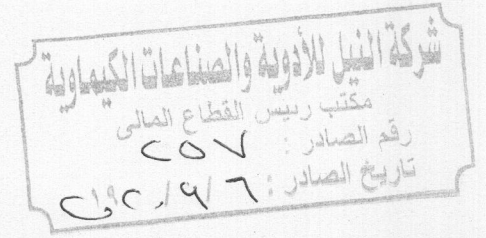 شركة النيل للأدوية والصناعات الكيماوية
مكتب رئيس القطاع المالى
رقم الصادر : ٢٥٧
تاريخ الصادر : ٦ / ٩ /